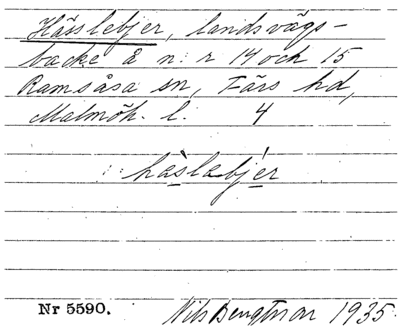 Hässlebjer, landsvägs-
backe å n:r 14 och 15
Ramsåsa sn, Färs hd,
Malmöh. l. 4
hàslabjér
Nr 5590. Nils Bengtsson 1935.